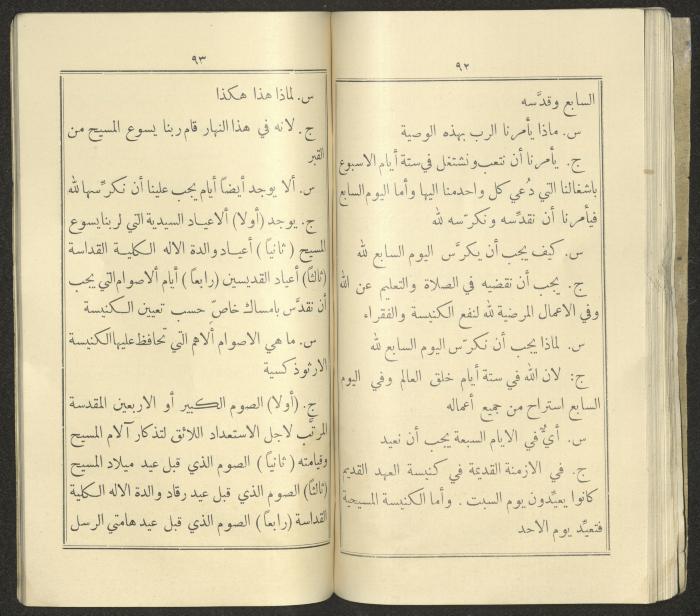 ٩٢
السابع وقدَّسه
س. ماذا يأمرنا الرب بهذه الوصية
ج. يأمرنا أن نتعب ونشتغل في ستة أيام الاسبوع
باشغالنا التي دُعي كل واحد منا اليها وأما اليوم السابع
فيأمرنا أن نقدّسه ونكرّسه لله
س. كيف يجب أن يكرَّس اليوم السابع لله
ج. يجب أن نقضيه في الصلاة والتعليم عن الله
وفي الاعمال المرضية لله لنفع الكنيسة والفقراء
س. لماذا يجب أن نكرّس اليوم السابع لله
ج: لان الله في ستة أيام خلق العالم وفي اليوم
السابع استراح من جميع أعماله
س. أيٌّ في الايام السبعة يجب أن نعيد
ج. في الازمنة القديمة في كنيسة العهد القديم
كانوا يعيّدون يوم السبت. وأما الكنيسة المسيحية
فتعيّد يوم الاحد
٩٣
س. لماذا هذا هكذا
ج. لانه في هذا النهار قام ربنا يسوع المسيح من
القبر
س. ألا يوجد أيضاً أيام يجب علينا أن نكرّسها لله
ج. يوجد (أولا) ألاعياد السيدية التي لربنا يسوع
المسيح (ثانياً) أعياد والدة الاله الكلية القداسة
(ثالثاً) أعياد القديسين (رابعاً) أيام ألاصوام التي يجب
أن نقدَّس بامساك خاصّ حسب تعيين الكنيسة
س. ما هي الاصوام ألاهم التي تحافظ عليها الكنيسة
الارثوذكسية
ج. (أولا) الصوم الكبير أو الاربعين المقدسة
المرتَّب لاجل الاستعداد اللائق لتذكار آلام المسيح
وقيامته (ثانياً) الصوم الذي قبل عيد ميلاد المسيح
(ثالثاً) الصوم الذي قبل عيد رقاد والدة الاله الكلية
القداسة (رابعاً) الصوم الذي قبل عيد هامتي الرسل